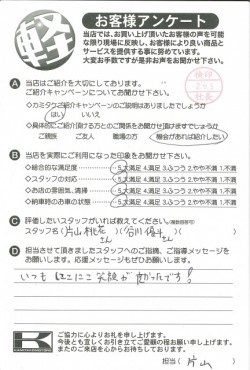 軽
お客様アンケート
当店では、お買い上げ頂いたお客様の声を可能
な限り現場に反映し、お客様により良い商品と
サービスを提供する事に努めています。
大変お手数ですが是非お声をお聞かせ下さい。
A 当店はご紹介を大切にしております。
ご紹介キャンペーンについてお聞かせ下さい。
◇カミタケご紹介キャンペーンのご説明はありましたでしょうか
はい いいえ
◇具体的にご紹介頂ける方とのご関係をお聞かせ頂けますでしょうか
ご親族 ご友人 職場の方 機会があれば紹介したい
B 当店を実際にご利用になった印象をお聞かせ下さい。
◇総合的な満足度 5.大満足 4.満足 3.ふつう 2.やや不満 1.不満
◇スタッフの対応 5.大満足 4.満足 3.ふつう 2.やや不満 1.不満
◇お店の雰囲気、清掃 5.大満足 4.満足 3.ふつう 2.やや不満 1.不満
◇納車時のお車の状態 5.大満足 4.満足 3.ふつう 2.やや不満 1.不満
C 評価したいスタッフがいれば教えてください。(複数回答可)
スタッフ名 (片山桃花さん) (谷川優斗さん)
D 担当させて頂きましたスタッフへのご指摘、ご指導メッセージを
お願いします。応援メッセージもぜひお願いします。
いつもにこにこ笑顔が
です!
K
ご協力に心よりお礼を申し上げます。
今後とも宜しくお引き立てご愛顧の程お願い申し上げます。
またのご来店を心からお待ちしております。
担当( 片山 )